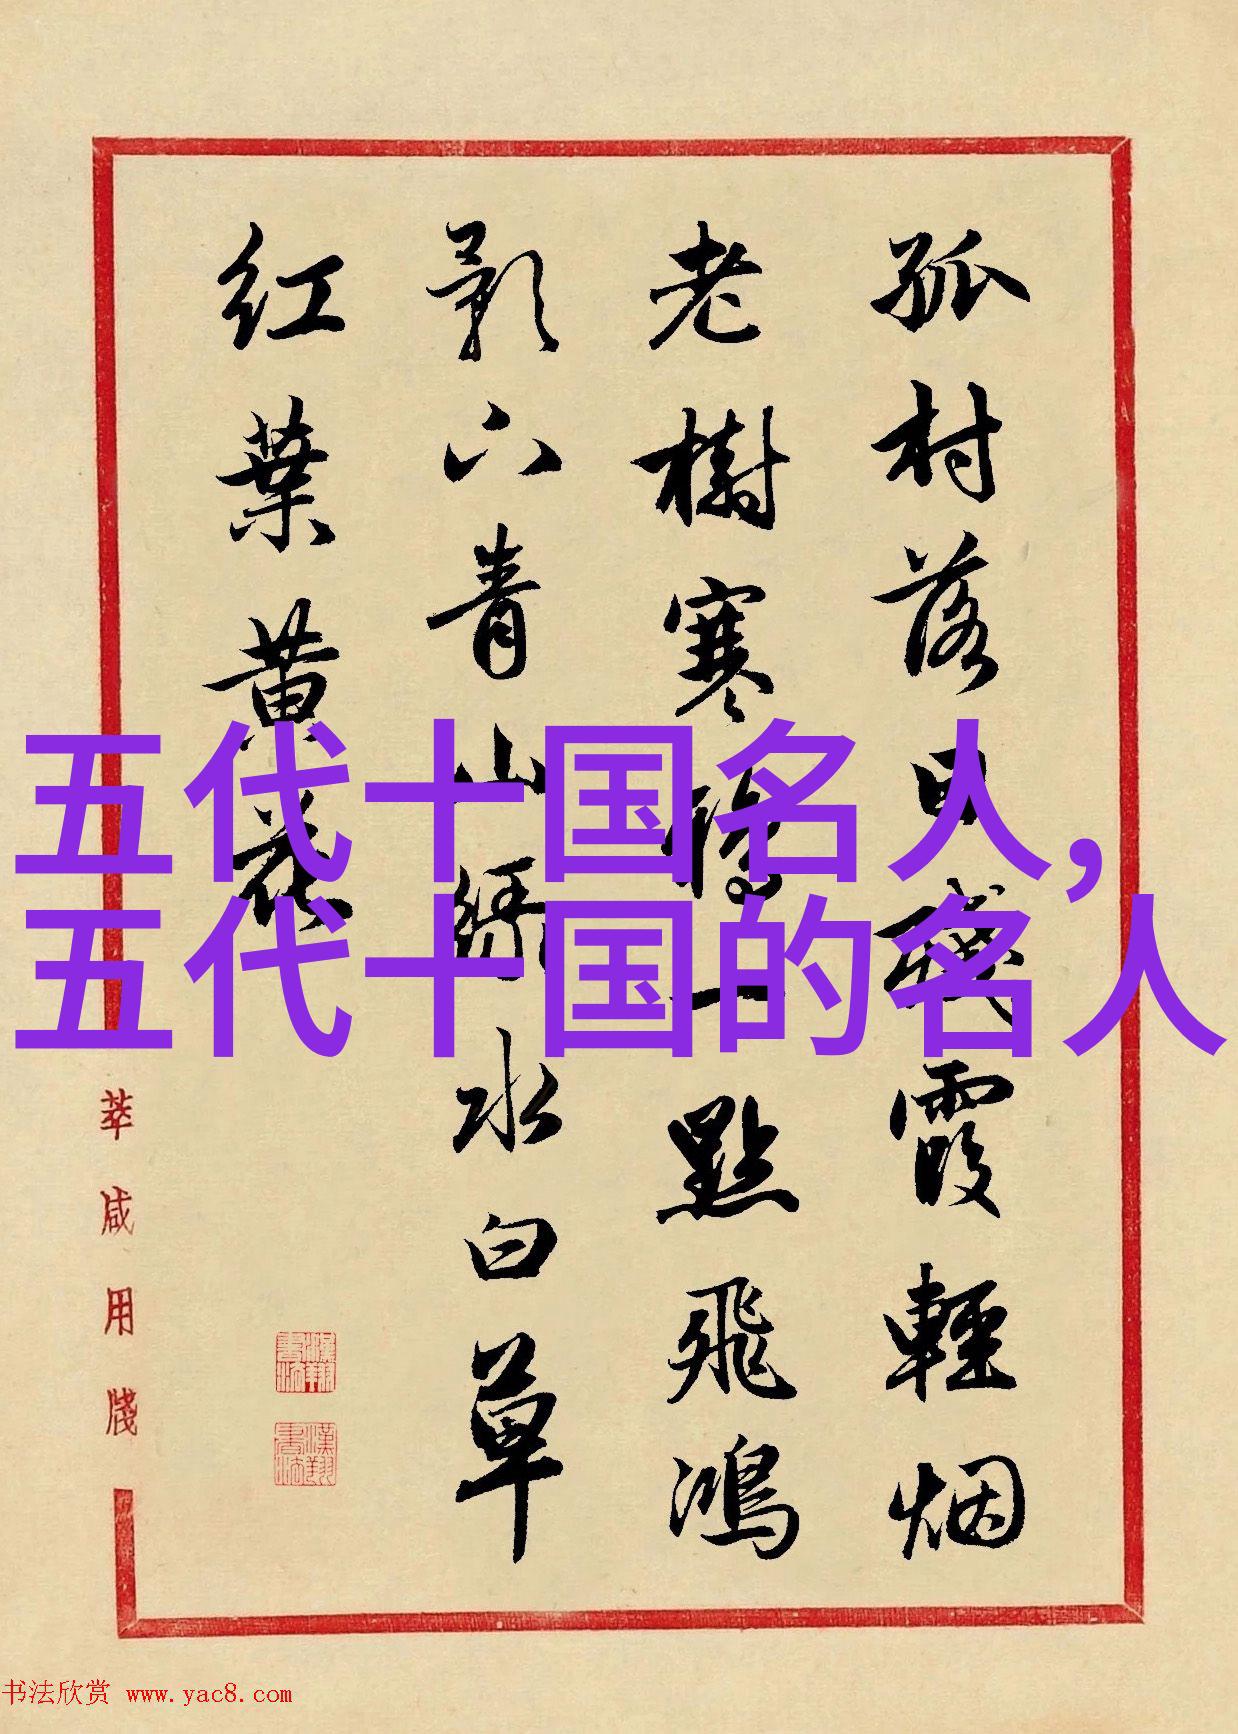 孤村落日残霞輕烟
老樹寒鴉一點飛鴻
影下青山緑水白草
红葉黄花
五代十国名人，
五代十国的名人
萃咸用牋
书法欣赏 www.yac8.com